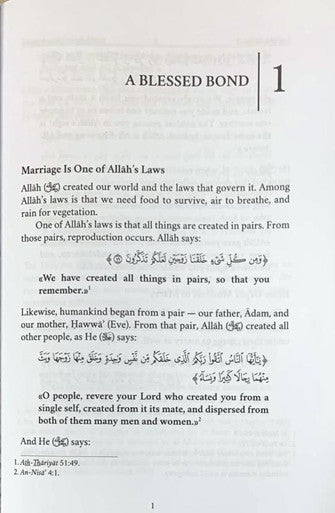 A BLESSED BOND
1
Marriage Is One of Allâh's Laws
Allâh (ﷻ) created our world and the laws that govern it. Among
Allâh's laws is that we need food to survive, air to breathe, and
rain for vegetation.
One of Allâh's laws is that all things are created in pairs. From
those pairs, reproduction occurs. Allâh says:
﴿وَمِن كُلِّ شَيْءٍ خَلَقْنَا زَوْجَيْنِ لَعَلَّكُمْ تَذَكَّرُونَ ۝﴾
«We have created all things in pairs, so that you
remember.»1
Likewise, humankind began from a pair — our father, Âdam, and
our mother, Ḥawwâ' (Eve). From that pair, Allâh (ﷻ) created all
other people, as He (ﷻ) says:
﴿يَٰٓأَيُّهَا ٱلنَّاسُ ٱتَّقُوا۟ رَبَّكُمُ ٱلَّذِى خَلَقَكُم مِّن نَّفْسٍ وَٰحِدَةٍ وَخَلَقَ مِنْهَا زَوْجَهَا وَبَثَّ
مِنْهُمَا رِجَالًا كَثِيرًا وَنِسَآءً﴾
«O people, revere your Lord who created you from a
single self, created from it its mate, and dispersed from
both of them many men and women.»2
And He (ﷻ) says:
1. Ath-Thâriyât 51:49.
2. An-Nisâ' 4:1.
1